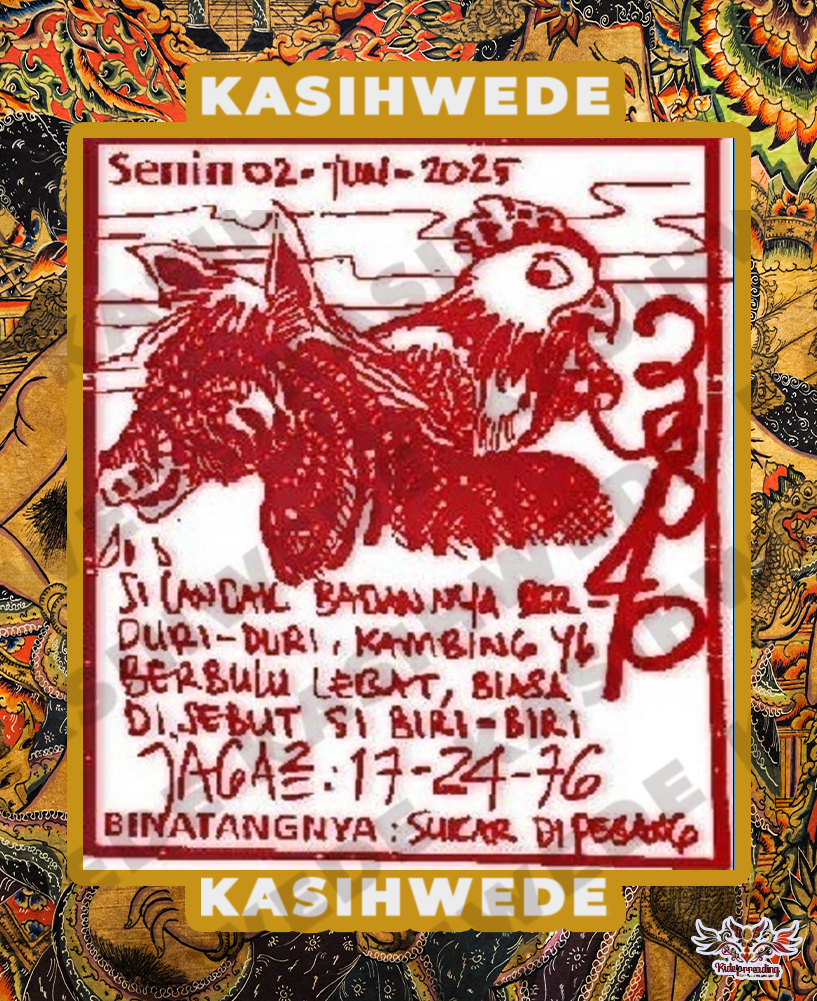 KASIHWEDE
Senin 02-Juni-2025
SI LANDAK BADANNYA BER-
DURI-DURI, KAMBING YG
BERBULU LEBAT, BIASA
DI SEBUT SI BIRI-BIRI
JAGA2 : 17-24-76
BINATANGNYA : SUKAR DI PEGANG
KASIHWEDE